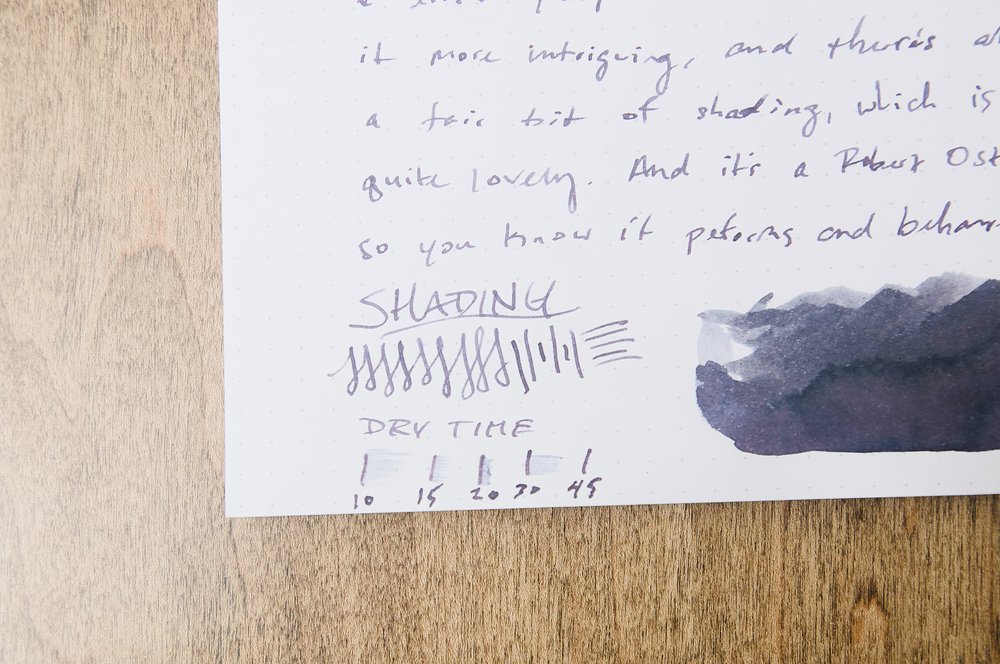 it more intriguing, and there's
a fair bit of shading, which is
quite lovely. And it's a Robert Ost
so you know it peforms and behav
SHADING
DRY TIME
10 15 20 30 45